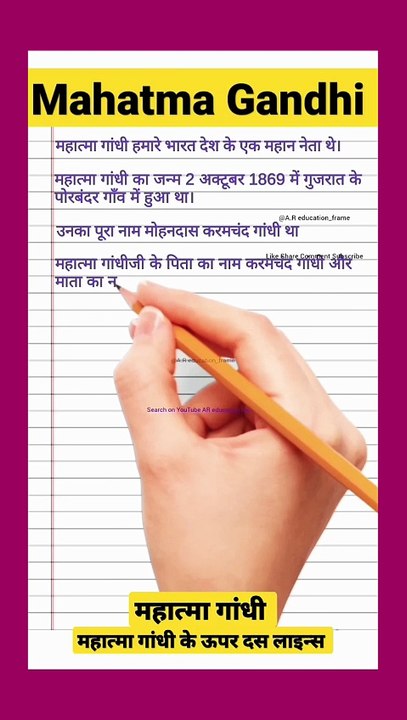 Mahatma Gandhi
महात्मा गांधी हमारे भारत देश के एक महान नेता थे।
महात्मा गांधी का जन्म 2 अक्टूबर 1869 में गुजरात के
पोरबंदर गाँव में हुआ था।
@A.R education_frame
उनका पूरा नाम मोहनदास करमचंद गांधी था
Like Share Comment Subscribe
महात्मा गांधीजी के पिता का नाम करमचंद गांधी और
माता का न
@A.R education_frame
Search on YouTube AR education
महात्मा गांधी
महात्मा गांधी के ऊपर दस लाइन्स